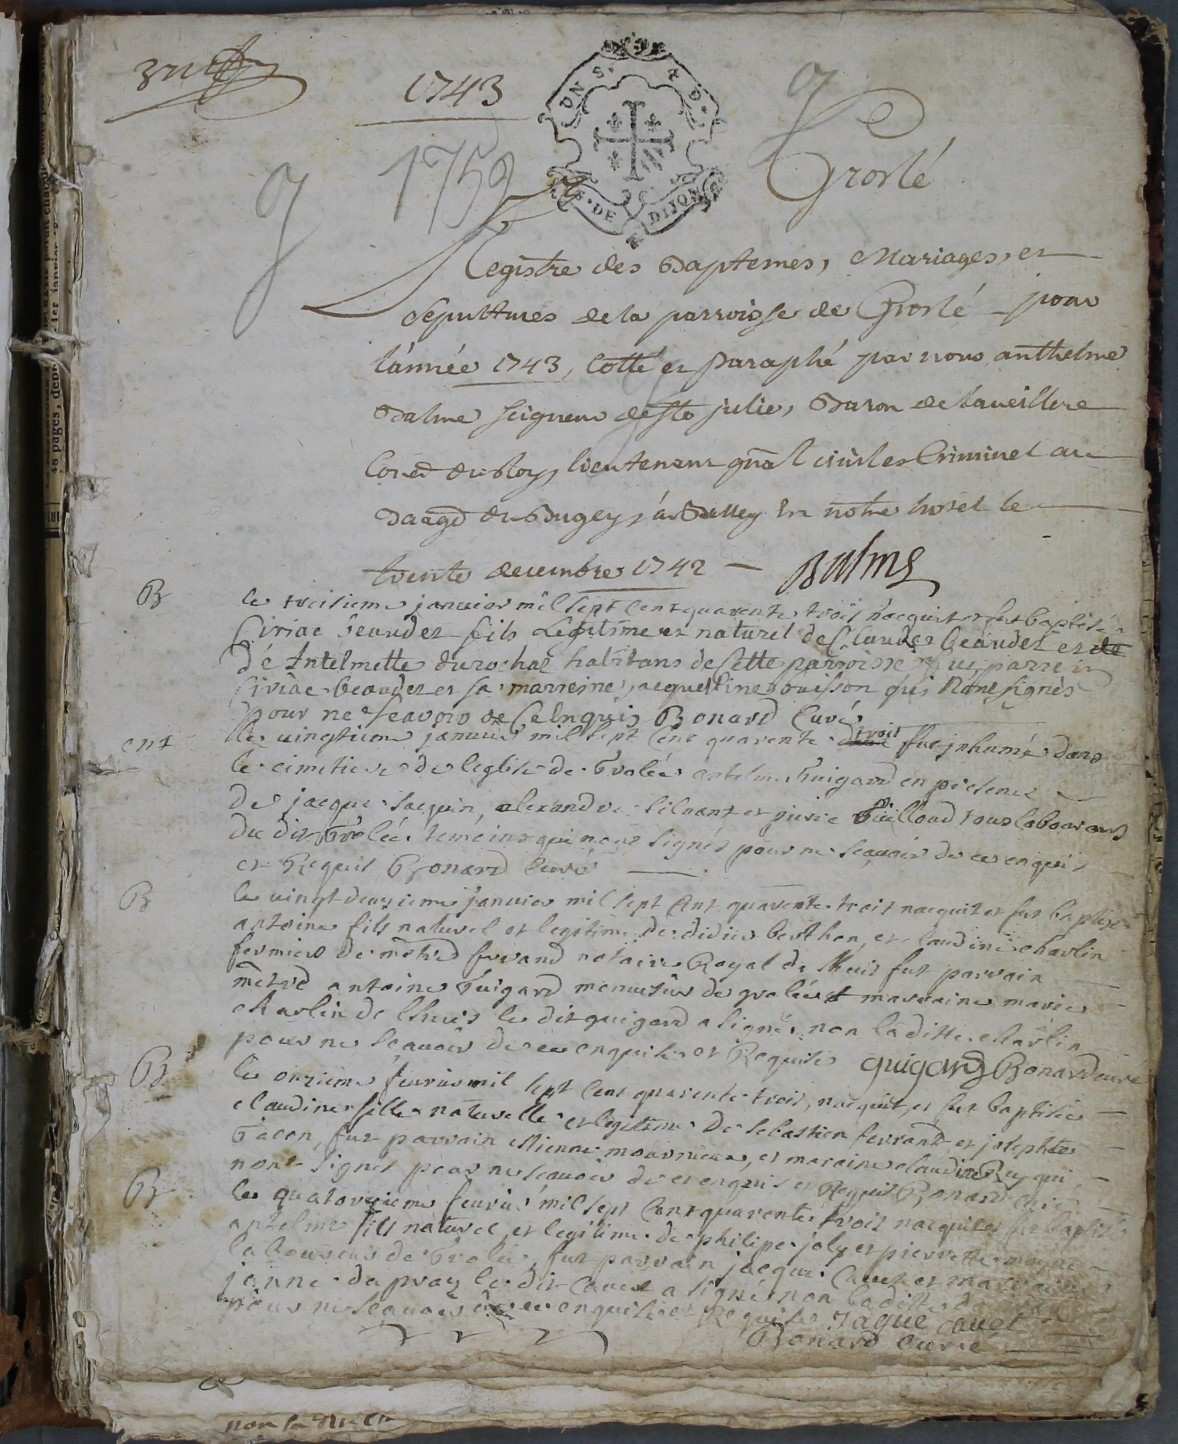 1743
1752
UNS
DE DIJON
Groslé
Registre des Baptemes, Mariages, et
sepultures de la parroisse de Groslé pour
l'année 1743, Cotté et Paraphé par nous anthelme
Balme seigneur de Ste julie, Baron de
du Roy, lieutenant gnal civil et Criminel au
du Bugey, à Belley En notre hotel le
trente decembre 1742 Balme
B
le troisieme janvier mil sept Cent quarente trois nacquit et fut baptisé
Ciriac beaudet fils Legitime et naturel de Claude beaudet et
D'e Antelmette durochat habitans de sette parroisse
Ciriac beaudet et sa marreine jacquemine buisson qui N'ont signés
pour ne sçavoir de Ce Enquis Bonard Curé
ent
le vingtieme janvier mil sept Cent quarente trois fut jnhumé dans
le cimetiere de leglise de Grolée antelme Guigard en presence
de jacque jacquin, alexandre et pierre Guilloud tous laboureurs
du dit Grolée temoins qui nont signés pour ne sçavoir de ce enquis
et Requis Bonard Curé
B
le vingt deuxieme janvier mil sept Cent quarente trois nacquit et fut baptisé
antoine fils naturel et legitime de didier berthen, et claudine charlin
fermiers de métred ferrand notaire Royal de lhuis fut parrain
métre antoine Guigard menusier de grolée et marraine marie
charlin de lhuis le dit guigard a signé, non la ditte charlin
pour ne sçavoir de ce enquise et Requise guigard Bonard curé
B
le onzieme fevrier mil sept Cent quarente trois, nacquit et fut baptisée
claudine fille naturelle et legitime de sebastien ferrand et josephte
Gacon, fut parrain Etienne mournieux, et maraine claudine Rey qui
nont signés pour ne sçavoir de ce enquis et Requis Bonard Curé
B
le quatorzieme fevrier mil sept Cent quarente trois nacquit et fut baptisé
antelme fils naturel et legitime de philipe joly et pierrette
laboureurs de Grolée, fut parrain jacque Cavet et marraine
jeanne depraz le dit Cavet a signé non la ditte
pour ne sçavoir de ce enquise et Requise Jaque Cavet
Bonard Curé
non la